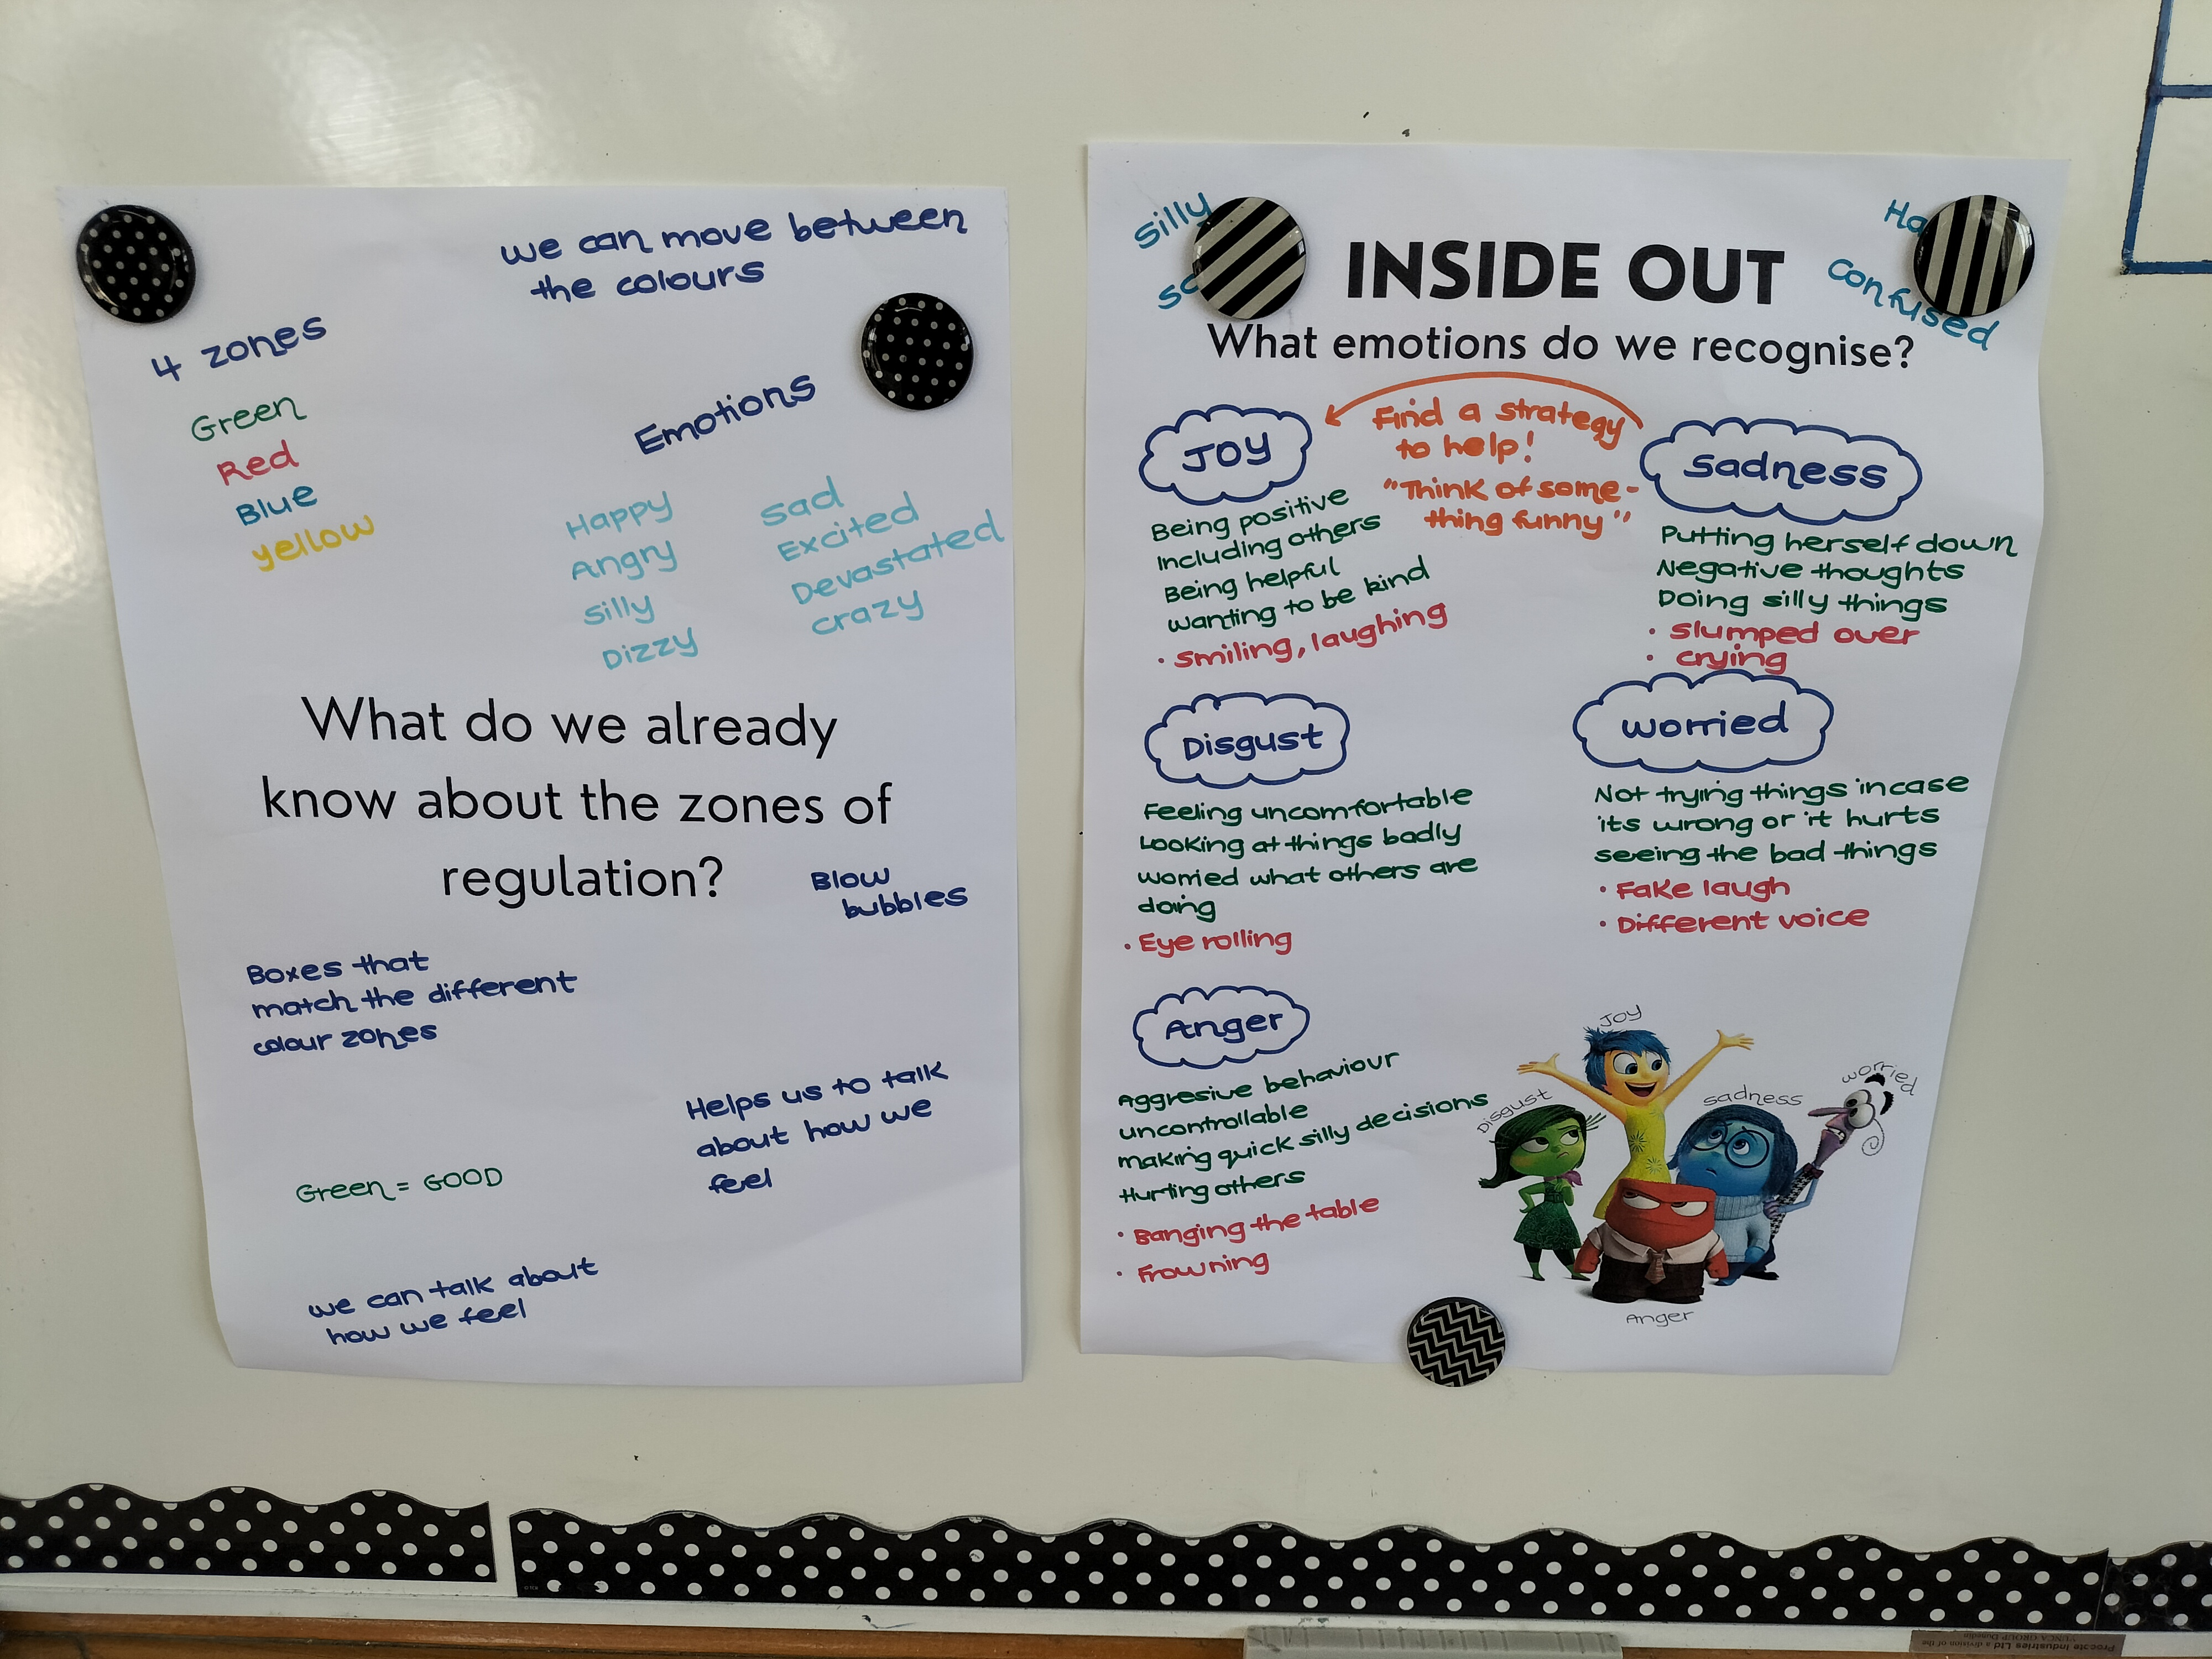 we can move between
the colours
4 zones
Green
Red
Blue
yellow
Emotions
Happy
Angry
Silly
Dizzy
Sad
Excited
Devastated
crazy
What do we already
know about the zones of
regulation?
Blow
bubbles
Boxes that
match the different
colour zones
Helps us to talk
about how we
feel
Green = GOOD
we can talk about
how we feel
Silly
confused
INSIDE OUT
What emotions do we recognise?
Find a strategy
to help!
"Think of some-
thing funny"
JOY
Being positive
Including others
Being helpful
wanting to be kind
• Smiling, laughing
Sadness
Putting herself down
Negative thoughts
Doing silly things
• Slumped over
• crying
Disgust
Feeling uncomfortable
Looking at things badly
worried what others are
doing
• Eye rolling
worried
Not trying things incase
its wrong or it hurts
seeing the bad things
• Fake laugh
• Different voice
Anger
Aggresive behaviour
uncontrollable
making quick silly decisions
Hurting others
• Banging the table
• Frowning
Joy
Disgust
sadness
worried
Anger
Procote Industries Ltd a division of the